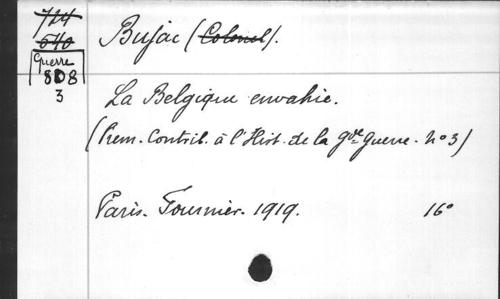 724
640
Guerre
808
3
Bujac (Colonel).
La Belgique envahie.
(Prem. Contrib. à l'Hist. de la Gde Guerre. No 3)
Paris. Fournier. 1919. 16°